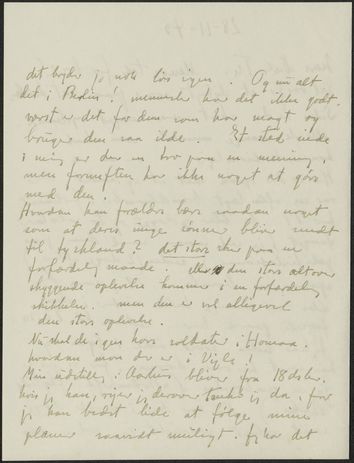 det bryder jo nok løs igen. Og nu alt
det i Berlin! mennesker har det ikke godt.
værst er det for dem som har magt og
bruger den saa ilde. Et sted inde
i mig er der en tro paa en mening,
men fornuften har ikke noget at gøre
med den.
Hvordan kan forældre bære saadan noget
som at deres unge sønner bliver sendt
til tyskland? det store sker paa en
forfærdelig maade. den store altover
skyggende oplevelse kommer i en forfærdelig
skikkelse. men den er vel alligevel
den store oplevelse.
Nu skal de igen have soldater i
hvordan mon der er i Vejle!
Min udstilling i Aarhus bliver fra 18 dsbr.
hvis jeg kan, rejser jeg derover tænker jeg da, for
jeg kan bedst lide at følge mine
planer saavidt muligt. Jeg har det